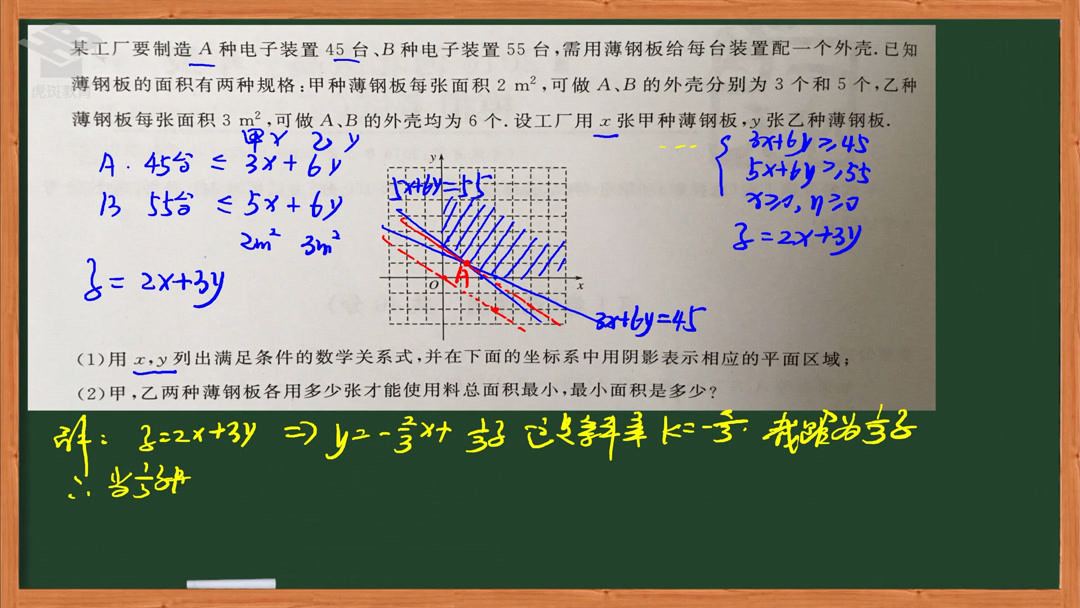 某工厂要制造 A 种电子装置 45 台、B 种电子装置 55 台,需用薄钢板给每台装置配一个外壳.已知
薄钢板的面积有两种规格:甲种薄钢板每张面积 2 m²,可做 A、B 的外壳分别为 3 个和 5 个,乙种
薄钢板每张面积 3 m²,可做 A、B 的外壳均为 6 个.设工厂用 x 张甲种薄钢板,y 张乙种薄钢板.
甲 x 乙 y
A. 45台 ≤ 3x+6y
B 55台 ≤ 5x+6y
2m² 3m²
z = 2x+3y
y
5x+6y=55
A
O
x
3x+6y=45
3x+6y≥45
5x+6y≥55
x≥0, y≥0
z=2x+3y
(1)用 x,y 列出满足条件的数学关系式,并在下面的坐标系中用阴影表示相应的平面区域;
(2)甲,乙两种薄钢板各用多少张才能使用料总面积最小,最小面积是多少?
解: z=2x+3y ⇒ y=-2/3x+1/3z 它是斜率 k=-2/3. 截距为1/3z
∴ 当1/3z